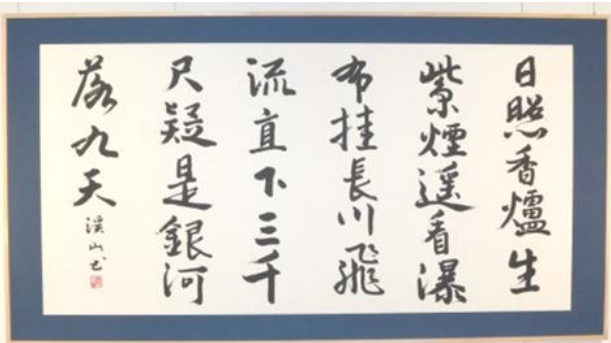 日照香爐生
紫煙遥看瀑
布挂長川飛
流直下三千
尺疑是銀河
落九天
渓山书